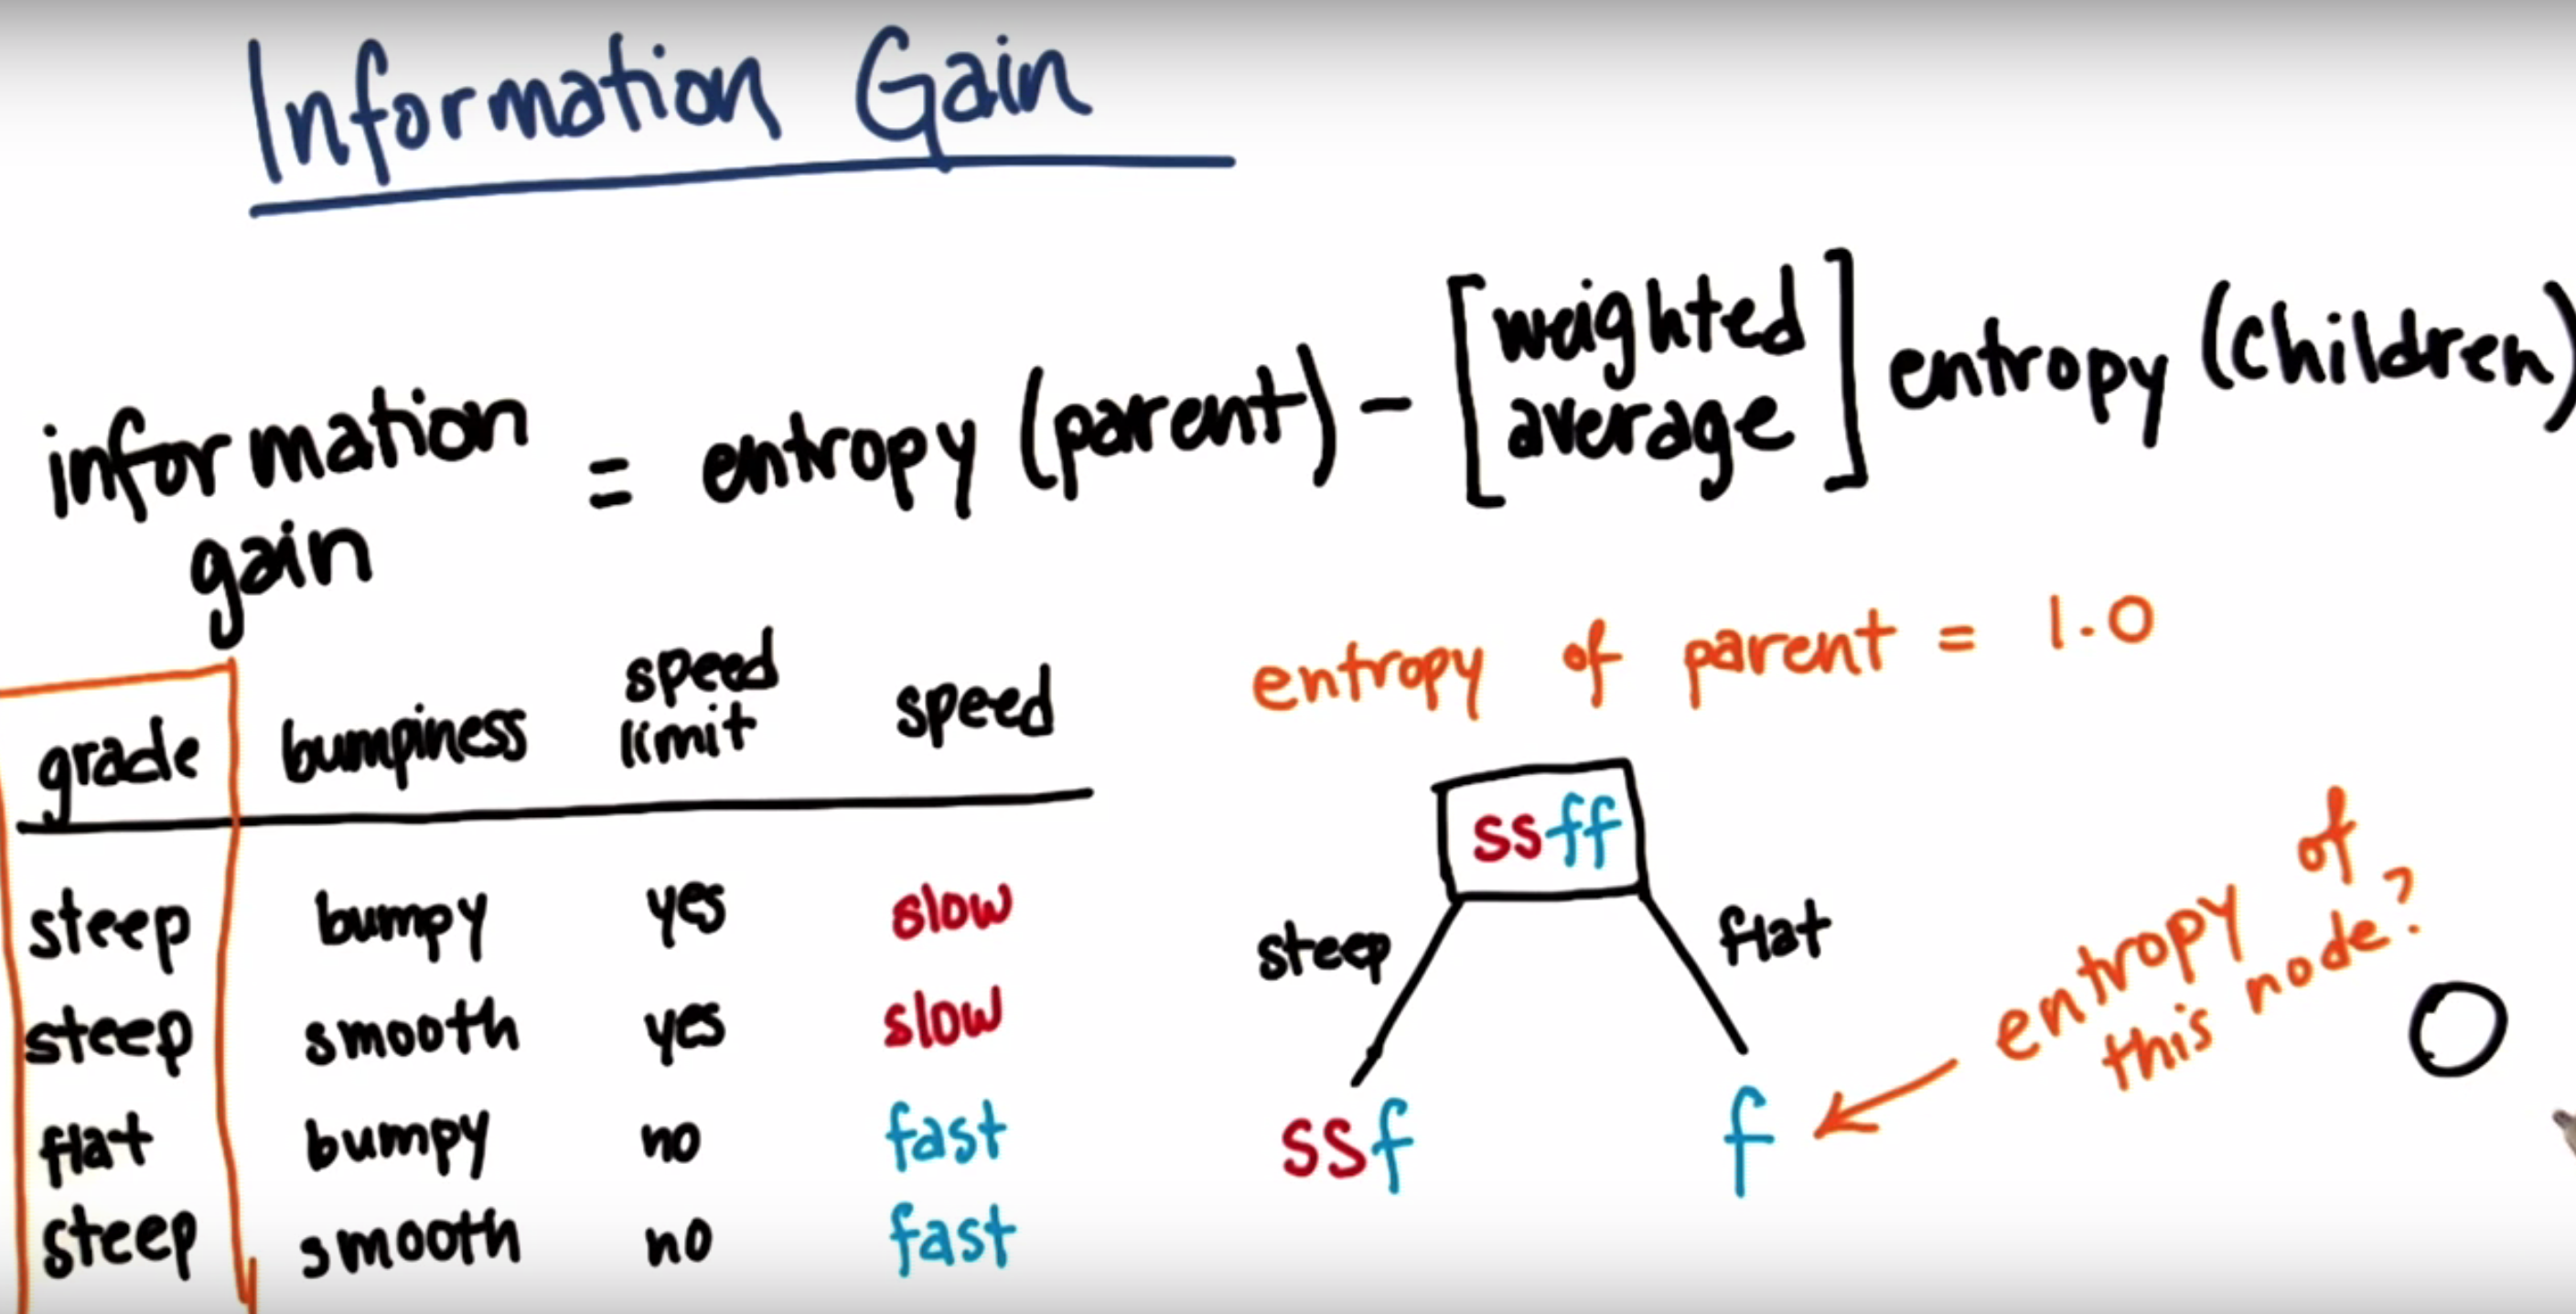 Information Gain
information gain = entropy (parent) - [weighted average] entropy (children)
grade bumpiness speed limit speed
steep bumpy yes slow
steep smooth yes slow
flat bumpy no fast
steep smooth no fast
entropy of parent = 1.0
ssff
steep flat
ssf f
entropy of
this node?
0